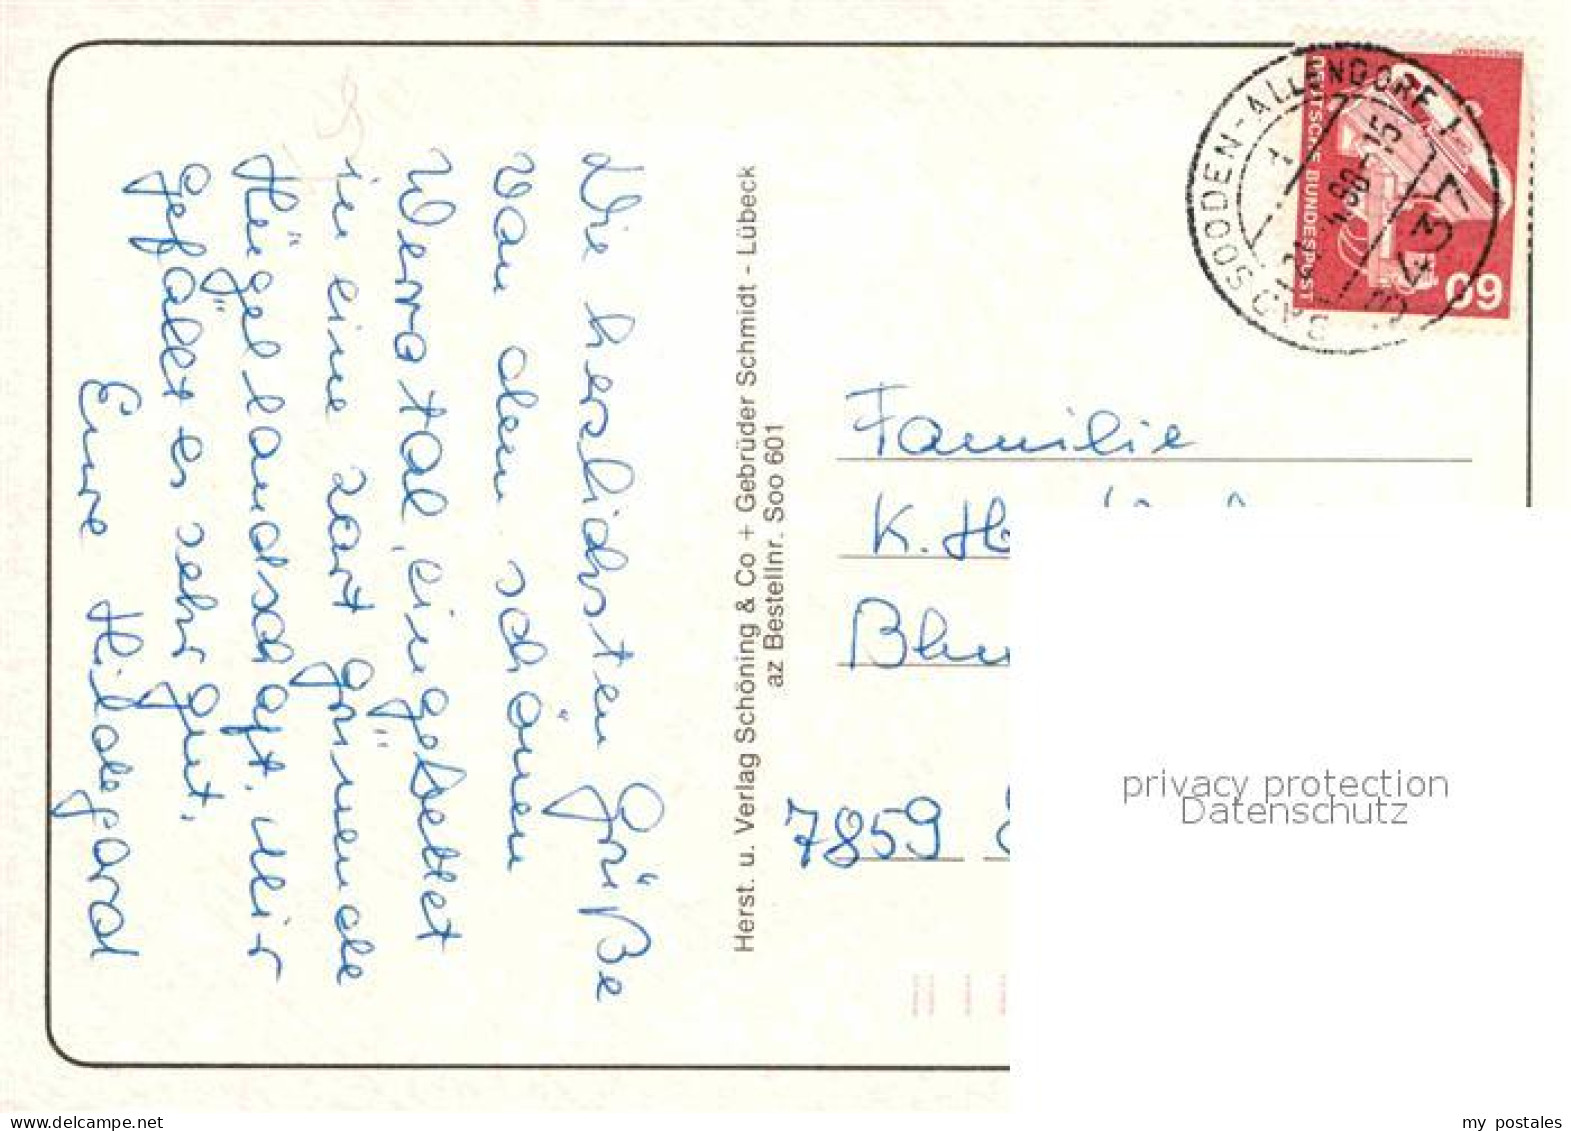 Die herzlichsten Grüße
von dem schönen
Werratal, eingebettet
in eine zart grünende
Hügellandschaft. Mir
gefällt es sehr gut.
Eure Hildegard
Herst. u. Verlag Schöning & Co + Gebrüder Schmidt - Lübeck
az Bestellnr. Soo 601
BAD SOODEN-ALLENDORF 1
3437
DEUTSCHE BUNDESPOST
60
Familie
K. H
7859
privacy protection
Datenschutz
my postales